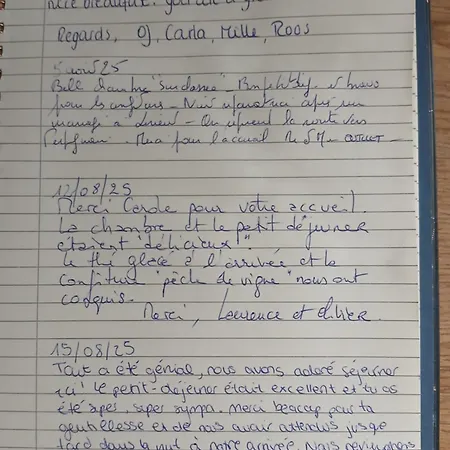 Nice breakfast.
Regards, OJ, Carla, Mille, Roos
5 août 25
Belle chambre "surclassée" - Bon petit dej. et bravo
pour les confitures - Nuit réparatrice après un
mariage à - On reprend la route vers
Merci pour l'accueil
12/08/25
Merci Carole pour votre accueil.
La chambre et le petit déjeuner
étaient "délicieux!"
Le thé glacé à l'arrivée et la
confiture "pêche de vigne" nous ont
conquis.
Merci, Laurence et Didier.
15/08/25
Tout a été génial, nous avons adoré séjourner
ici! Le petit-déjeuner était excellent et tu as
été super, super sympa. Merci beacop pour ta
gentillesse et de nous avoir attendus jusque
tard dans la nuit à notre arrivée. Nous reviendrons